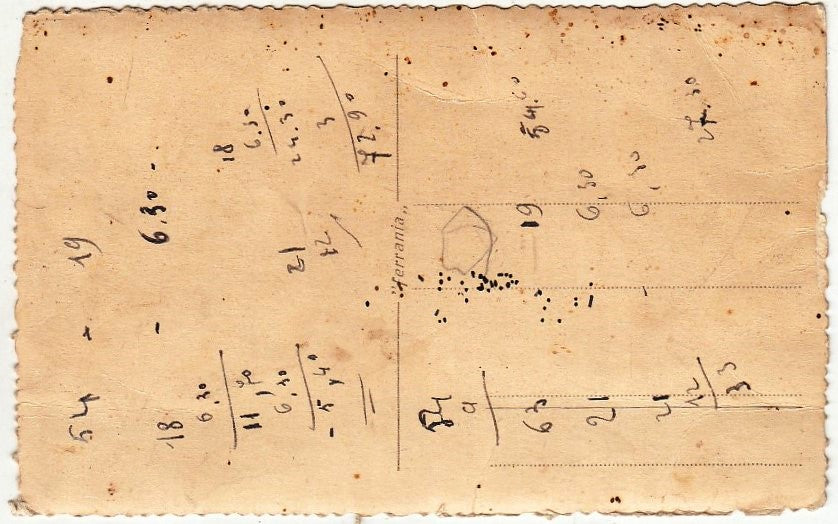 54 - 19
18 - 6.30 -
6,30
11,70
6,30
5,40
18
6.30
24.30
3
72.90
21
12
"ferrania"
54
9
63
21
21
12
33
19
54.60
6,30
6,30
27.30